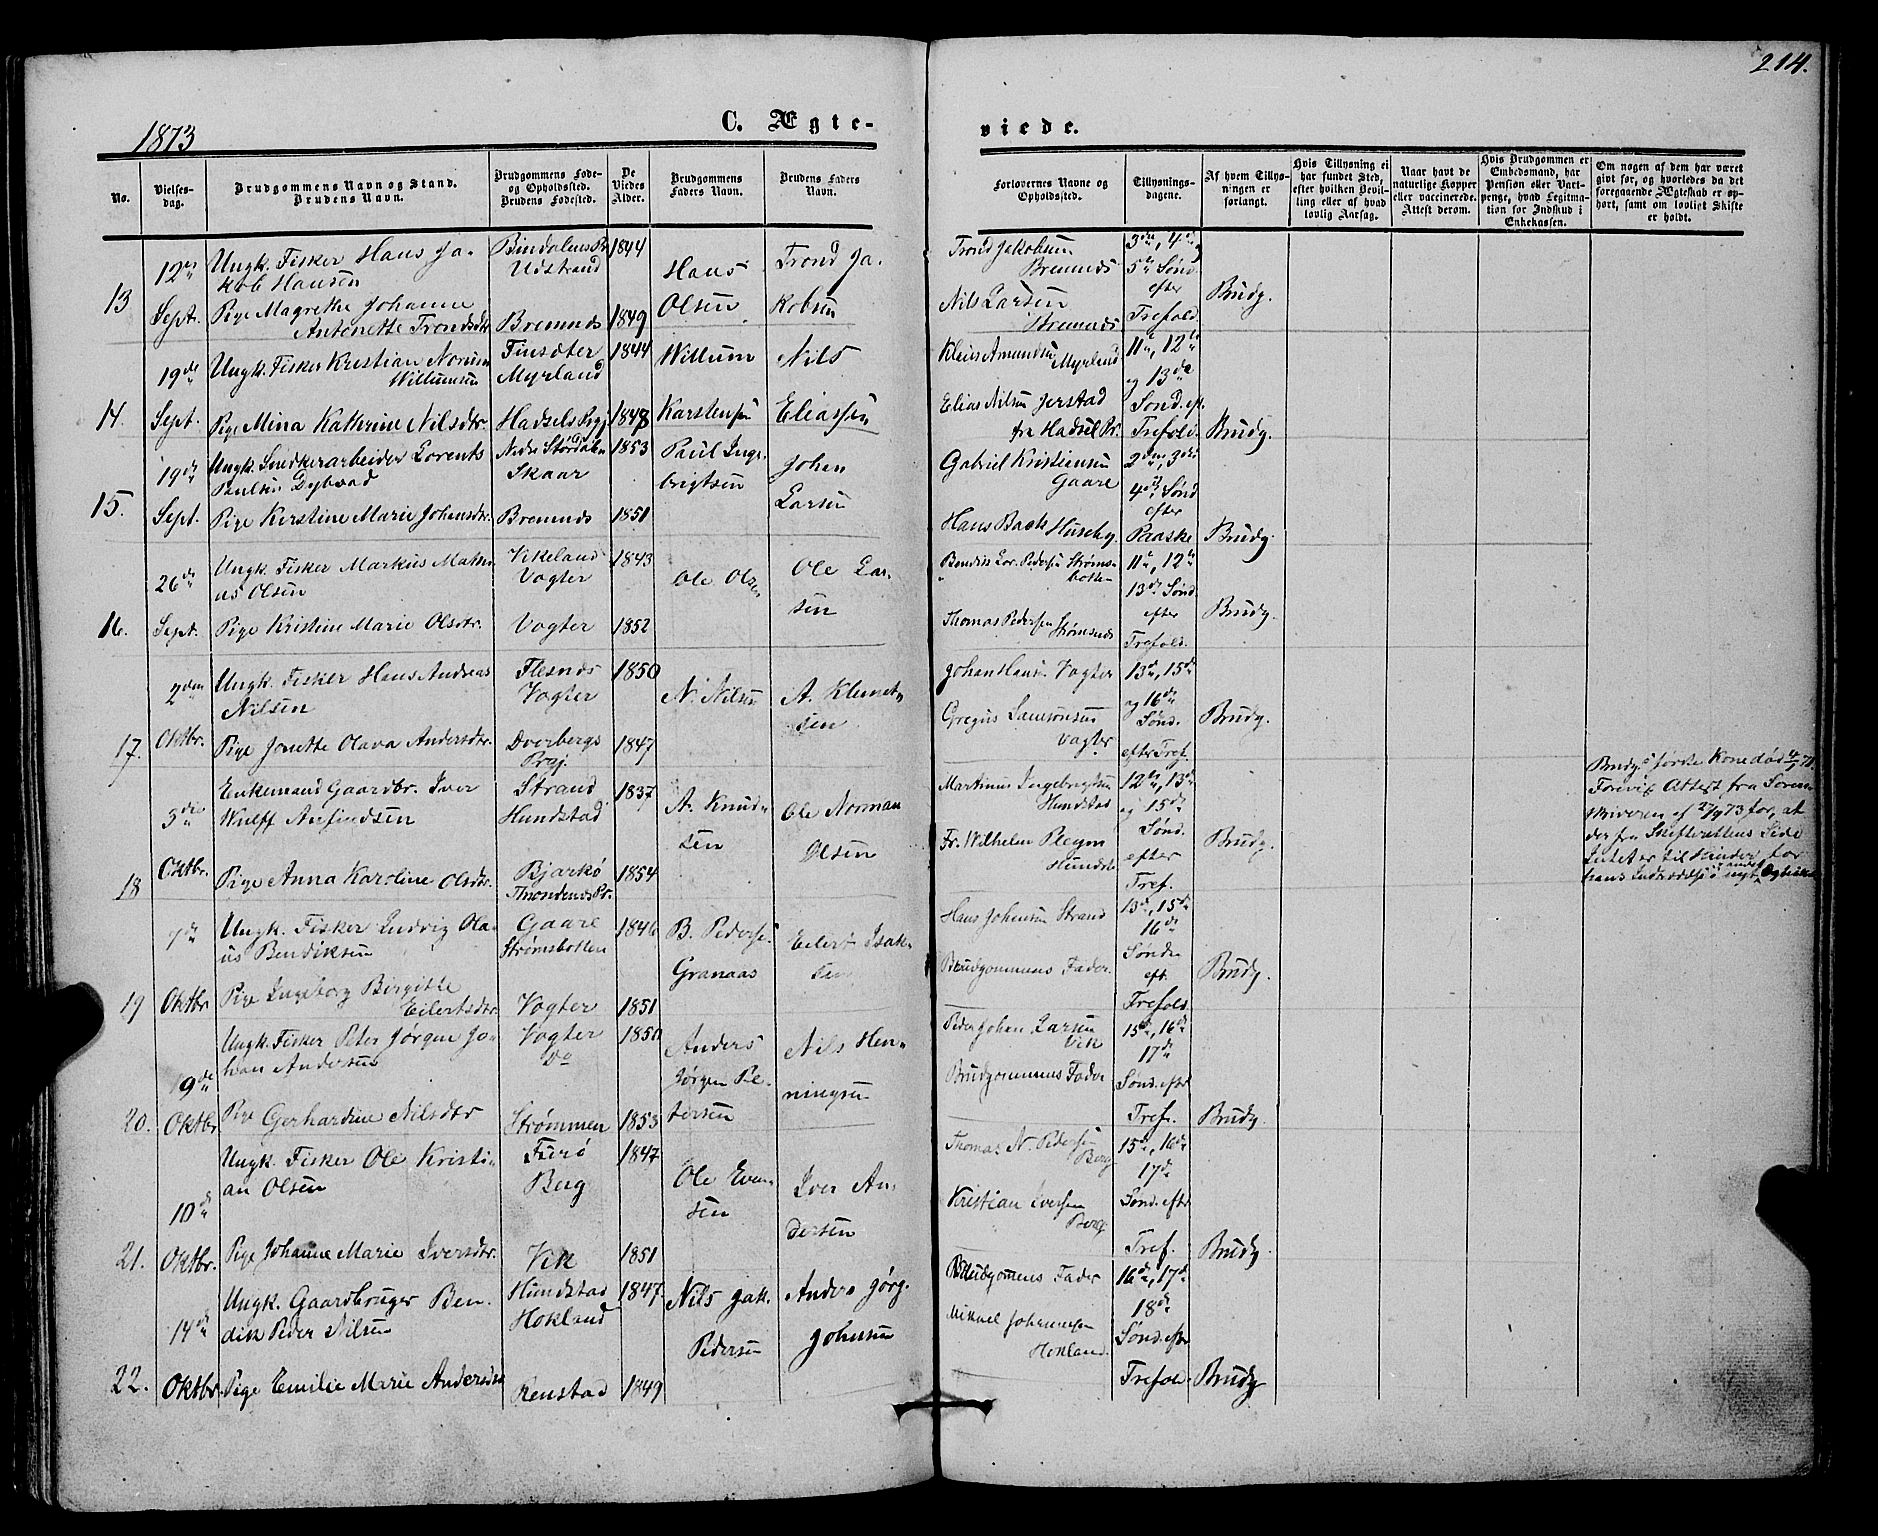 214.
1873
C. Ægte-
viede.
No.
Vielses-
dag.
Brudgommens Navn og Stand.
Brudens Navn.
Brudgommens Føde-
og Opholdssted.
Brudens Fødested.
De
Viedes
Alder.
Brudgommens
Faders Navn.
Brudens Faders
Navn.
Forlovernes Navne og
Opholdssted.
Tillysnings-
dagene.
Af hvem Tillys-
ningen er
forlangt.
Hvis Tillysning ei
har fundet Sted,
efter hvilken Bevil-
ling eller af hvad
lovlig Aarsag.
Naar havt de
naturlige Kopper
eller vaccinerede.
Attest derom.
Hvis Brudgommen er
Embedsmand, har
Pension eller Vart-
penge, hvad Legitima-
tion for Indskud i
Enkekassen.
Om nogen af dem har været
givt før, og hvorledes da det
foregaaende Ægteskab er op-
hørt, samt om lovligt Skifte
er holdt.
13
12te
Sept.
Ungk. Fisker Hans Ja-
kob Hansen
Pige Magrethe Johanne
Antonette Trondsdtr
Bindalens Pr
Udstrand
Bremnes
1844
1849
Hans
Olsen
Trond Ja-
kobsen
Trond Jakobsen
Bremnes
Nils Larsen
Bremnes
3die, 4de
5te Sønd.
efter
Trefold.
Brudg.
14.
19de
Sept.
Ungk. Fisker Kristian Norum
Willumsen
Pige Mina Kathrine Nilsdtr.
Finsæter
Myrland
Hadsels Prgj
1844
1848
Willum
Karstensen
Nils
Eliassen
Kleius Amundsen
Myrland
Elias Nilsen Jerstad
fra Hadsel Pr.
11te, 12te
og 13de
Sønd. eft.
Trefold.
Brudg.
15.
19de
Sept.
Ungk. Snedkerarbeider Lorents
Paulsen Dybvad
Pige Kirstine Marie Johensdtr.
Nedre Størdalen
Skaar
Bremnes
1853
1851
Paul Inge-
brigtsen
Johen
Larsen
Gabriel Kristiansen
Gaare
Hans Bach Huseby
2den, 3die
4de Sønd
efter
Paaske
Brudg.
16.
26de
Sept.
Ungk. Fisker Markus Mathi-
as Olsen
Pige Kristine Marie Olsdtr.
Vikeland
Vogter
Vogter
1843
1852
Ole Olsen
Ole Lar-
sen
Bendix Lor. Pedersen Strøms-
botten
Thomas Pedersen
Strømsnes
11te, 12te
13de Sønd.
efter
Trefold.
Brudg.
17.
2den
Oktbr.
Ungk. Fisker Hans Andreas
Nilsen
Pige Jonette Olava Andersdtr.
Flesnes
Vogter
Dverbergs
Prgj.
1850
1847
N. Nilsen
A. Klemet-
sen
Johan Hans. Vogter
Gregus
Vogter
13de, 15de
og 16de
Sønd.
efter Tref.
Brudg.
18
3die
Oktbr.
Enkemand Gaardbr. Iver
Wulff Anfindsen
Pige Anna Karoline Olsdtr.
Strand
Hundstad
Bjarkø
Throndenes Pr.
1837
1854
A. Knud-
sen
Ole Norman
Olsen
Martinus Ingebrigtsen
Hundstad
Fr. Wilhelm Pleym
Hundstad
12te, 13de
og 15de
Sønd.
efter
Tref.
Brudg.
Brudg.s første Kone død
Forevist Attest fra Soren-
skriveren af 27/9 73 for, at
der fra Skifterettens Side
Intet er til Hinder for
hans Indtrædelse i nyt Ægteskab
19
7de
Oktbr.
Ungk. Fisker Ludvig Ola-
us Bendiksen
Pige Ingeborg Birgitte
Eilertsdtr.
Gaare
Strømsbotten
Vogter
1846
1851
B. Pederse.
Granaas
Eilert Isak-
sen
Hans Johensen Strand
Brudgommens Fader
13de, 15de
16de
Sønd.
eft.
Trefold.
Brudg.
20.
9de
Oktbr
Ungk. Fisker Peter Jørgen Jo-
han Andersen
Pige Gerhardine Nilsdtr
Vogter
Do
Strømmen
1850
1853
Anders
Jørgen Pe-
tersen
Nils Hen-
ningsen
Peder Johen Larsen
Vik
Brudgommens Fader
15de, 16de
17de
Sønd. eftr
Tref.
Brudg.
21.
10de
Oktbr.
Ungk. Fisker Ole Kristi-
an Olsen
Pige Johanne Marie Iversdtr.
Furø
Berg
Vik
1847
1851
Ole Even-
sen
Iver An-
dersen
Thomas N. Pedersen
Berg
Kristian Iversen
Berg
15de, 16de
17de
Sønd. eftr
Tref.
Brudg.
22.
14de
Oktbr.
Ungk. Gaardbruger Ben-
dik Peder Nilsen
Pige Emilie Marie Andersdtr
Hundstad
Hokland
Renstad
1847.
1849
Nils Jak.
Pedersen
Anders Jørg.
Johnsen
Brudgomens Fader
Mikael Johannesen
Hokland.
16de, 17de
18de
Sønd. eftr
Trefold.
Brudg